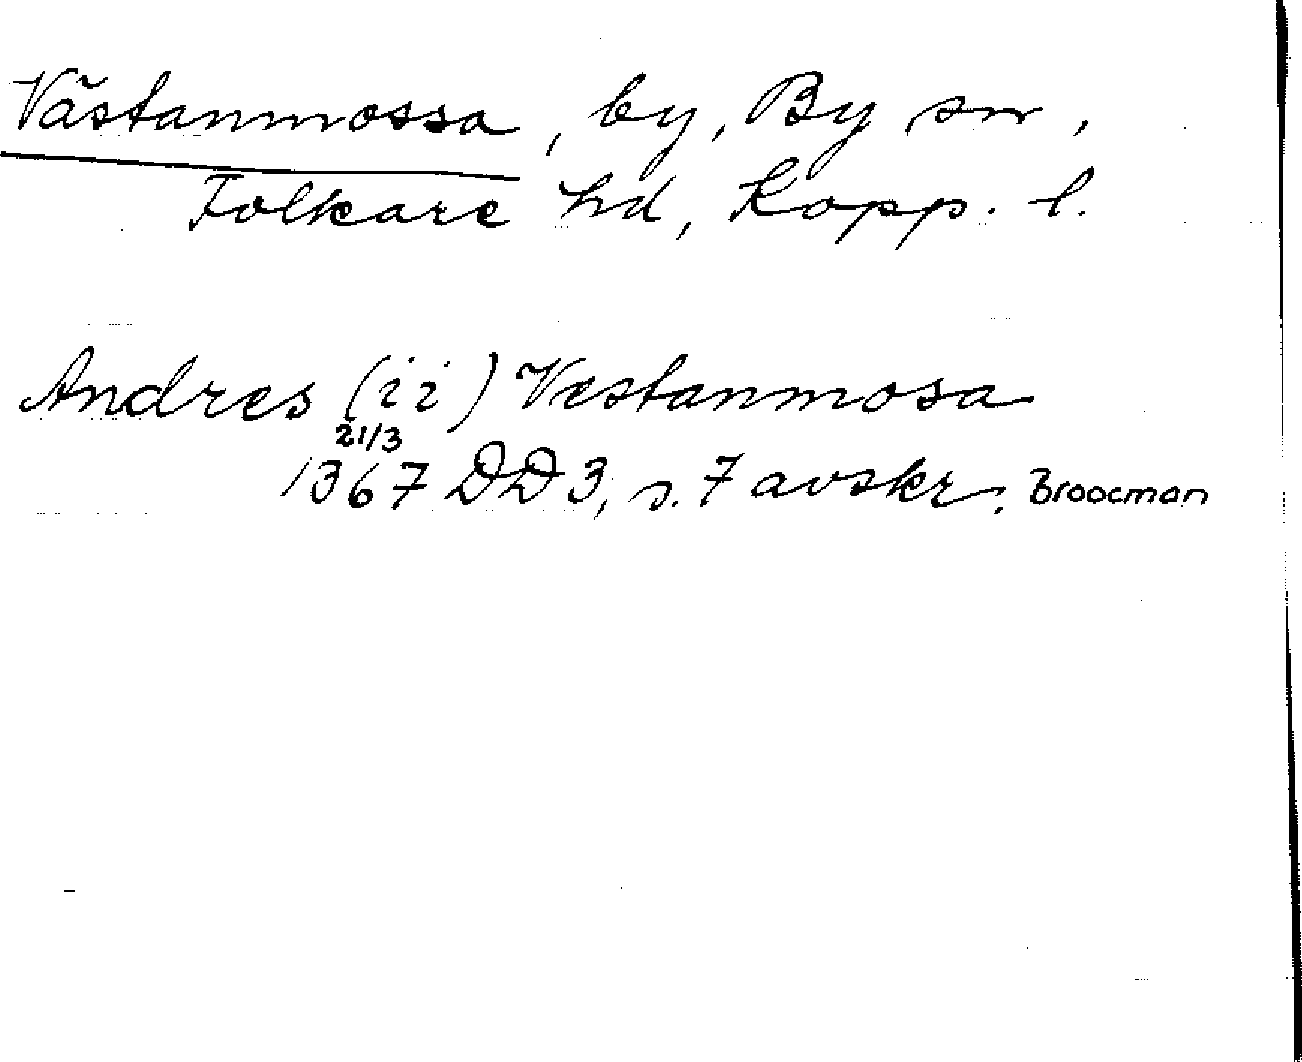 Västanmossa, by, By sn,
Folkare hd, Kopp. l.
Andres (ii) Vestanmosa
21/3
1367 DD 3, s. 7 avskr. Broocman